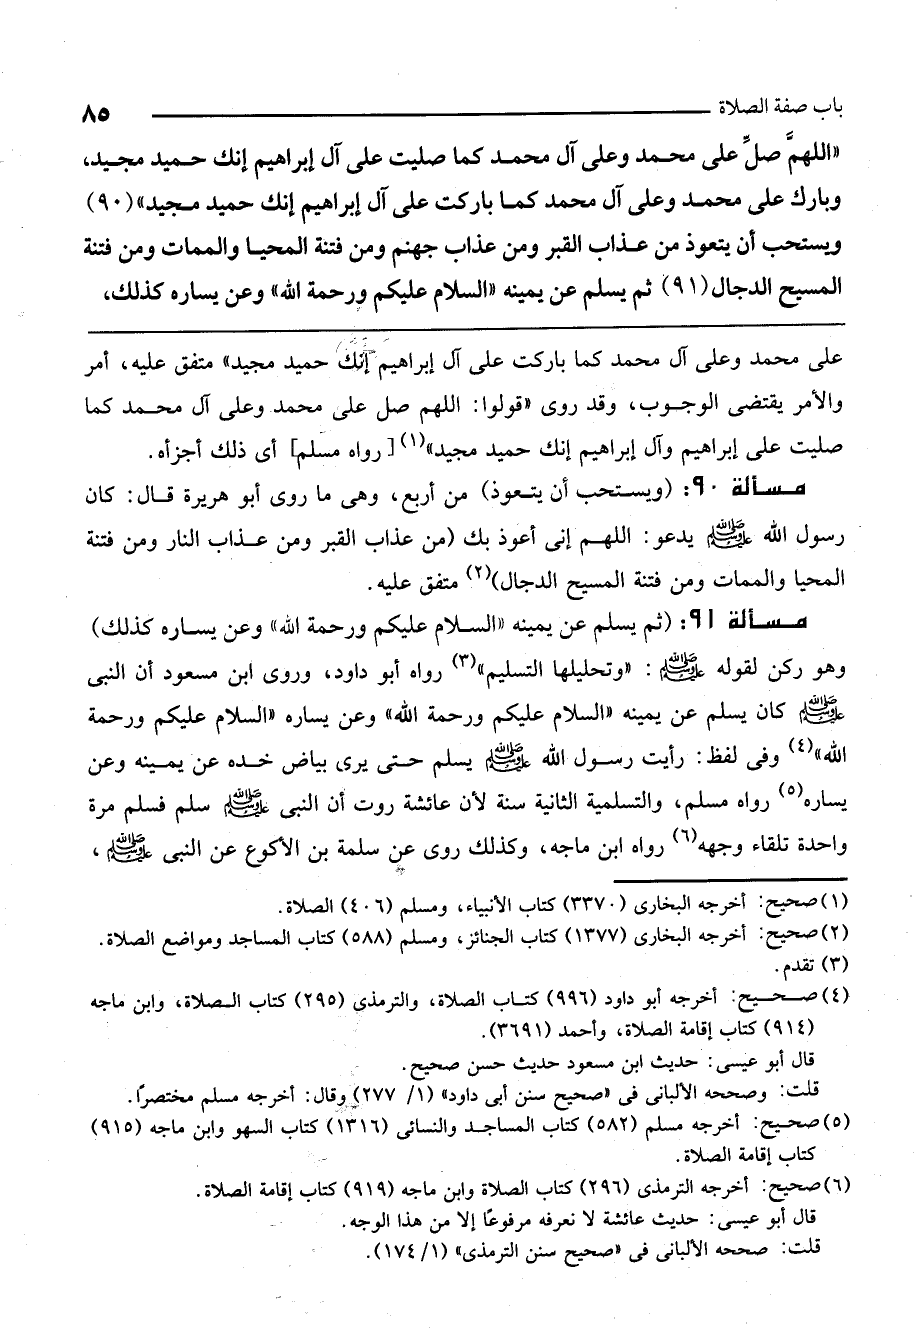 باب صفة الصلاة ٨٥
«اللهمَّ صلِّ على محمد وعلى آل محمد كما صليت على آل إبراهيم إنك حميد مجيد،
وبارك على محمد وعلى آل محمد كما باركت على آل إبراهيم إنك حميد مجيد» (٩٠)
ويستحب أن يتعوذ من عذاب القبر ومن عذاب جهنم ومن فتنة المحيا والممات ومن فتنة
المسيح الدجال (٩١) ثم يسلم عن يمينه «السلام عليكم ورحمة الله» وعن يساره كذلك،
على محمد وعلى آل محمد كما باركت على آل إبراهيم إنك حميد مجيد» متفق عليه، أمر
والأمر يقتضى الوجوب، وقد روى «قولوا: اللهم صل على محمد وعلى آل محمد كما
صليت على إبراهيم وآل إبراهيم إنك حميد مجيد»(١) [رواه مسلم] أى ذلك أجزأه.
مسألة ٩٠: (ويستحب أن يتعوذ) من أربع، وهى ما روى أبو هريرة قال: كان
رسول الله ﷺ يدعو: اللهم إنى أعوذ بك (من عذاب القبر ومن عذاب النار ومن فتنة
المحيا والممات ومن فتنة المسيح الدجال)(٢) متفق عليه.
مسألة ٩١: (ثم يسلم عن يمينه «السلام عليكم ورحمة الله» وعن يساره كذلك)
وهو ركن لقوله ﷺ: «وتحليلها التسليم»(٣) رواه أبو داود، وروى ابن مسعود أن النبى
ﷺ كان يسلم عن يمينه «السلام عليكم ورحمة الله» وعن يساره «السلام عليكم ورحمة
الله»(٤) وفى لفظ: رأيت رسول الله ﷺ يسلم حتى يرى بياض خده عن يمينه وعن
يساره(٥) رواه مسلم، والتسلمية الثانية سنة لأن عائشة روت أن النبى ﷺ سلم فسلم مرة
واحدة تلقاء وجهه(٦) رواه ابن ماجه، وكذلك روى عن سلمة بن الأكوع عن النبى ﷺ،
(١) صحيح: أخرجه البخارى (٣٣٧٠) كتاب الأنبياء، ومسلم (٤٠٦) الصلاة.
(٢) صحيح: أخرجه البخارى (١٣٧٧) كتاب الجنائز، ومسلم (٥٨٨) كتاب المساجد ومواضع الصلاة.
(٣) تقدم.
(٤) صحيح: أخرجه أبو داود (٩٩٦) كتاب الصلاة، والترمذى (٢٩٥) كتاب الصلاة، وابن ماجه
(٩١٤) كتاب إقامة الصلاة، وأحمد (٣٦٩١).
قال أبو عيسى: حديث ابن مسعود حديث حسن صحيح.
قلت: وصححه الألبانى فى «صحيح سنن أبى داود» (١/ ٢٧٧) وقال: أخرجه مسلم مختصرًا.
(٥) صحيح: أخرجه مسلم (٥٨٢) كتاب المساجد والنسائى (١٣١٦) كتاب السهو وابن ماجه (٩١٥)
كتاب إقامة الصلاة.
(٦) صحيح: أخرجه الترمذى (٢٩٦) كتاب الصلاة وابن ماجه (٩١٩) كتاب إقامة الصلاة.
قال أبو عيسى: حديث عائشة لا نعرفه مرفوعًا إلا من هذا الوجه.
قلت: صححه الألبانى فى «صحيح سنن الترمذى» (١/ ١٧٤).